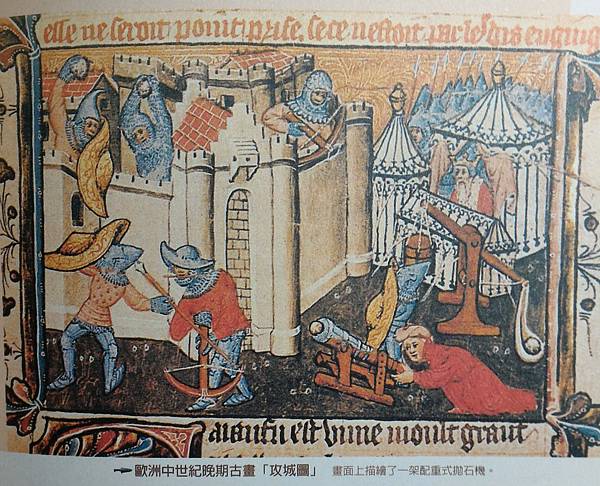 elle ne seroit point prise se ce nestoit par les gns enging
auoit est vune moult grant
歐洲中世紀晚期古畫「攻城圖」 畫面上描繪了一架配重式拋石機。